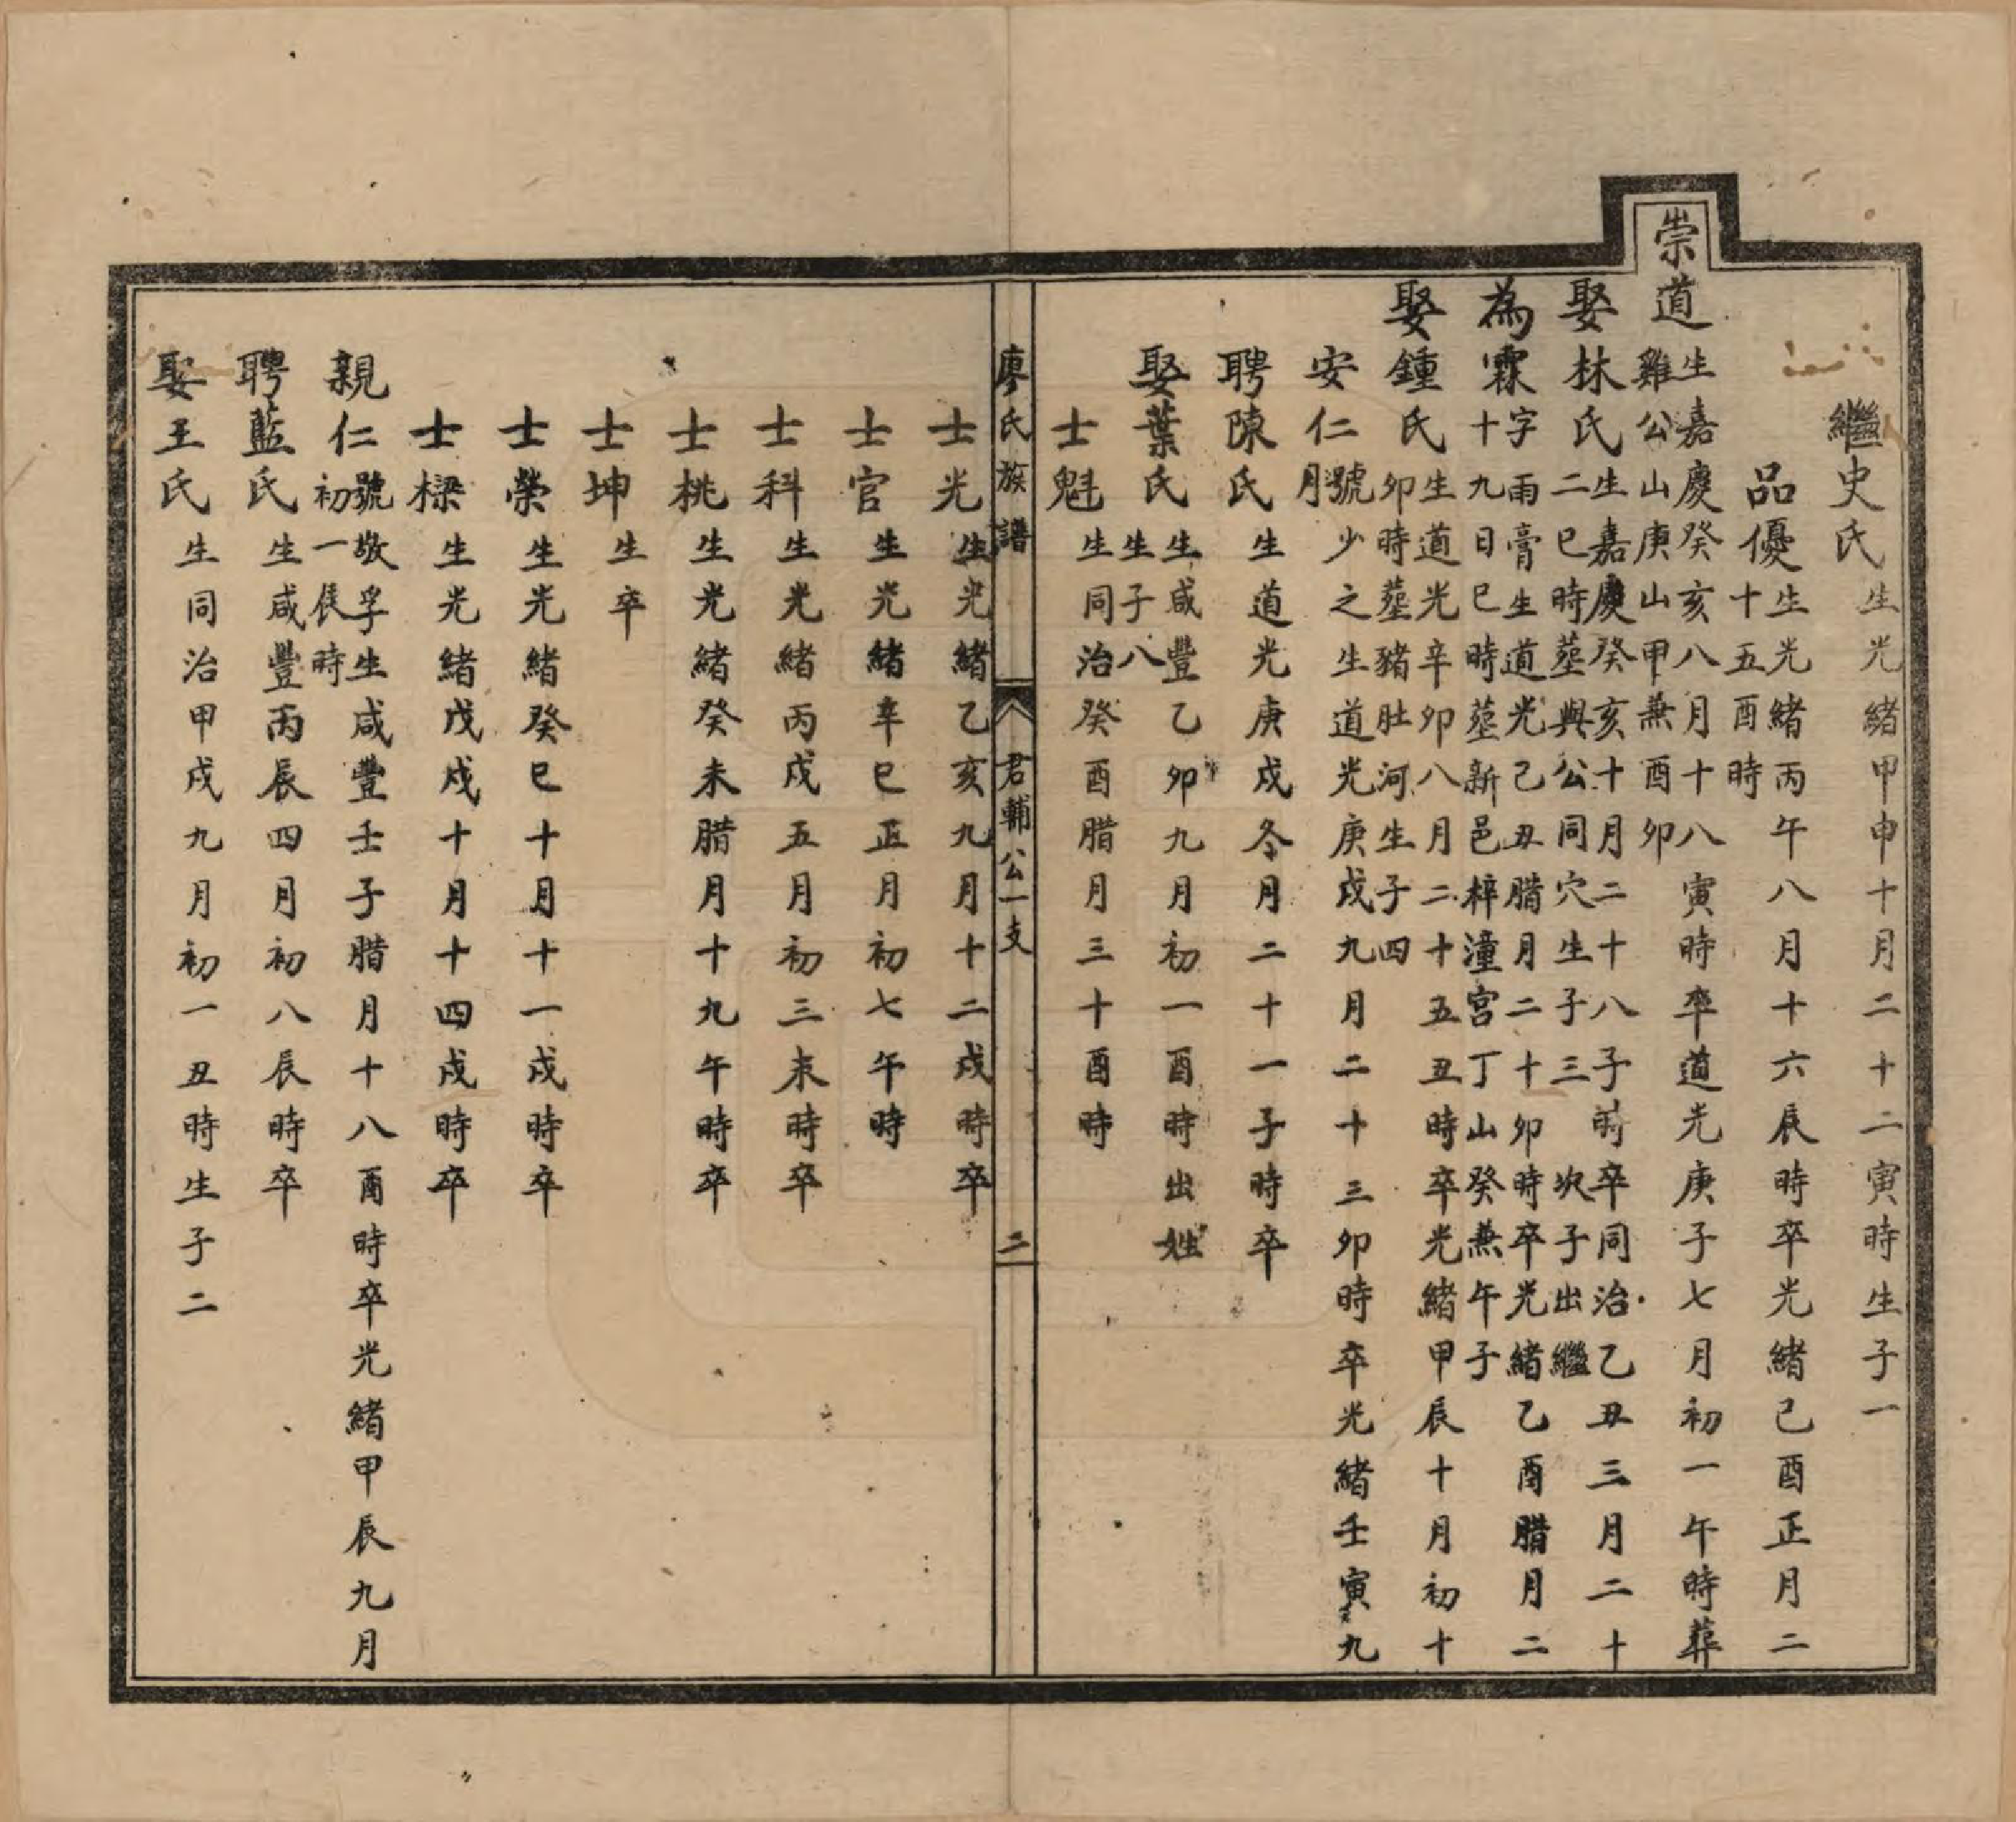 繼史氏生光緒甲申十月二十二寅時生子一
品優生光緒丙午八月十六辰時卒光緒己酉正月二
十五酉時
崇道生嘉慶癸亥八月十八寅時卒道光庚子七月初一午時葬
雞公山庚山甲兼酉卯
娶林氏生嘉慶癸亥十月二十八子時卒同治乙丑三月二十
二巳時塟與公同穴生子三 次子出繼
為霖字雨膏生道光己丑腊月二十卯時卒光緒乙酉腊月二
十九日巳時塟新邑梓潼宮丁山癸兼午子
娶鍾氏生道光辛卯八月二十五丑時卒光緒甲辰十月初十
卯時塟豬肚河生子四
安仁號少之生道光庚戌九月二十三卯時卒光緒壬寅九
月
聘陳氏生道光庚戌冬月二十一子時卒
娶葉氏生咸豐乙卯九月初一酉時出姓
生子八
士魁生同治癸酉腊月三十酉時
廖氏族譜 君輔公一支 二
士光生光緒乙亥九月十二戌時卒
士官生光緒辛巳正月初七午時
士科生光緒丙戌五月初三未時卒
士桃生光緒癸未腊月十九午時卒
士坤生卒
士榮生光緒癸巳十月十一戌時卒
士樑生光緒戊戌十月十四戌時卒
親仁號敬孚生咸豐壬子腊月十八酉時卒光緒甲辰九月
初一辰時
聘藍氏生咸豐丙辰四月初八辰時卒
娶王氏生同治甲戌九月初一丑時生子二